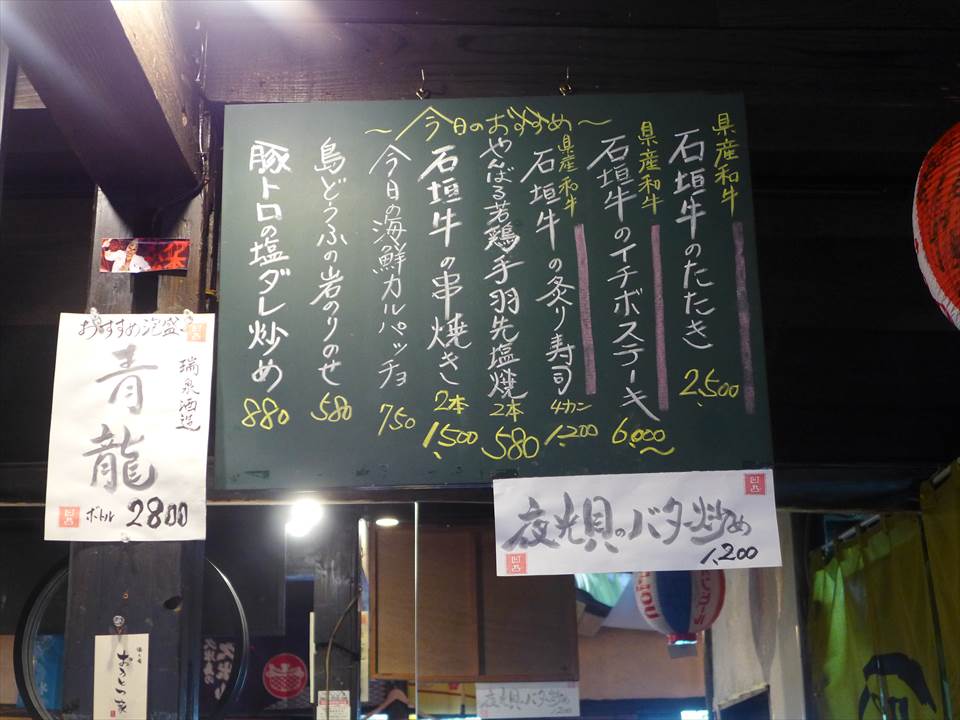 ～今日のおすすめ～
県産和牛
石垣牛のたたき
2,500
県産和牛
石垣牛のイチボステーキ
6,000～
県産和牛
石垣牛の炙り寿司
4カン
1,200
やんばる若鶏手羽先塩焼
2本
580
石垣牛の串焼き
2本
1,500
今日の海鮮カルパッチョ
750
島どうふの岩のりのせ
580
豚トロの塩ダレ炒め
880
夜光貝のバター炒め
1,200
おすすめ泡盛
瑞泉酒造
青龍
ボトル 2800
夜光貝のバター炒め
1,200